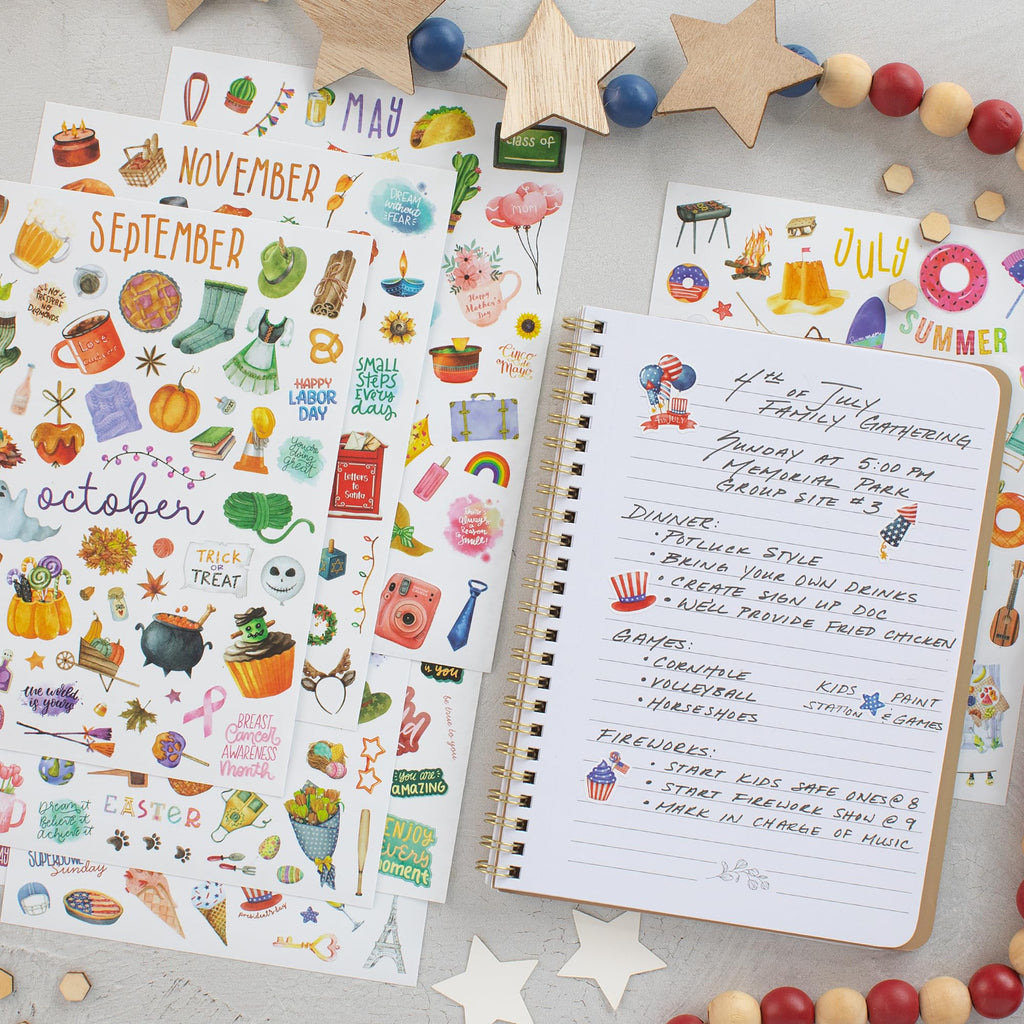 MAY
class of
NOVEMBER
DREAM
without
FEAR
MOM
SEPTEMBER
JULY
Happy
Mother's
Day
SUMMER
NO PRESSURE
NO DIAMONDS
Cinco
de Mayo
HAPPY
LABOR
DAY
SMALL
STEPS
EVERY
DAY
You're
doing
great
Letters
to
Santa
There's
Always
a
Reason
to
Smile!
october
TRICK
OR
TREAT
the world
is yours
BREAST
Cancer
AWARENESS
Month
be true to you
YOU ARE
AMAZING
Dream it
Believe it
Achieve it
EASTER
ENJOY
EVERY
moment
SUPERBOWL
Sunday
President's
DAY
4TH
OF JULY
FAMILY GATHERING
SUNDAY AT 5:00 PM
MEMORIAL PARK
GROUP SITE #3
DINNER:
• POTLUCK STYLE
• BRING YOUR OWN DRINKS
• CREATE SIGN UP DOC
• WE'LL PROVIDE FRIED CHICKEN
GAMES:
• CORNHOLE
• VOLLEYBALL
• HORSESHOES
KIDS STATION
PAINT & GAMES
FIREWORKS:
• START KIDS SAFE ONES @ 8
• START FIREWORK SHOW @ 9
• MARK IN CHARGE OF MUSIC